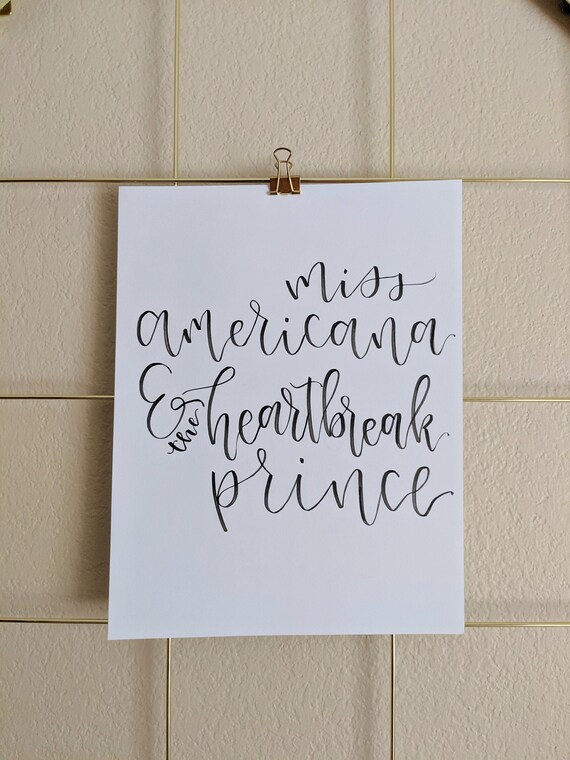 miss
americana
& the heartbreak
prince